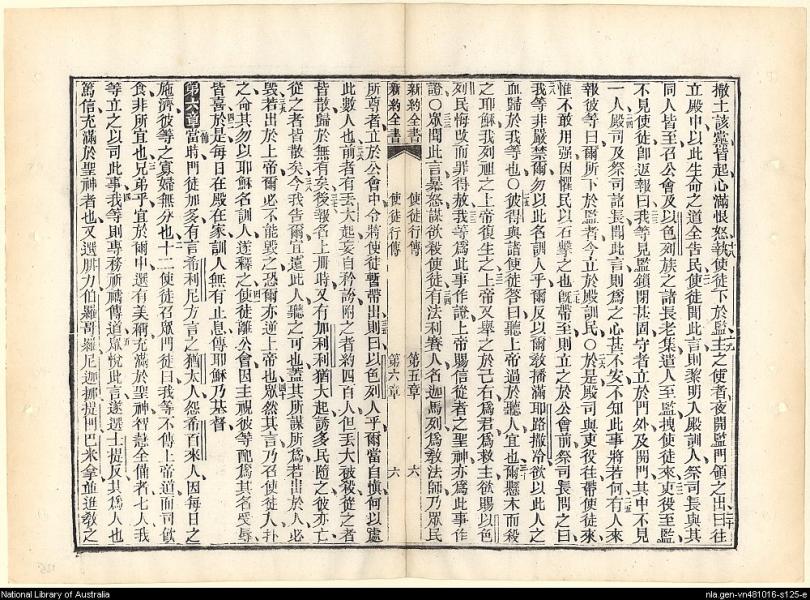 撒土該黨皆起心滿恨怒執使徒下於監主之使者夜開監門領之出曰往
立殿中以此生命之道全告民使徒聞此言則黎明入殿訓人祭司長與其
同人皆至召公會及以色列族之諸長老集遣人至監拽使徒來吏役至監
不見使徒卽返報曰我等見監鎖閉甚固守者立於門外及開門其中不見
一人殿司及祭司諸長聞此言則爲之心甚不安不知此事將若何有人來
報彼等曰爾所下於監者今立於殿訓民○於是殿司與吏役往帶使徒來
惟不敢用强因懼民以石擊之也旣帶至則立之於公會前祭司長問之曰
我等非嚴禁爾勿以此名訓人乎爾反以爾敎播滿耶路撒冷欲以此人之
血歸於我等也○彼得與諸使徒答曰聽上帝過於聽人宜也爾懸木而殺
之耶穌我列祖之上帝復生之上帝又舉之於己右爲君爲救主欲賜以色
列民悔改而罪得赦我等爲此事作證上帝賜信從者之聖神亦爲此事作
證○眾聞此言暴怒謀欲殺使徒有法利賽人名迦馬列爲敎法師乃眾民
新約全書 使徒行傳 第五章 六
新約全書 使徒行傳 第六章 六
所尊者立於公會中令將使徒暫帶出則曰以色列人乎爾當自愼何以處
此數人也前者有丟大起妄自矜誇附之者約四百人但丟大被殺從之者
皆散歸於無有矣後報名上册時又有加利利猶大起誘多民隨之彼亦亡
從之者皆散矣今我告爾宜遠此人聽之可也蓋其所謀所爲若出於人必
毀若出於上帝爾必不能毀之恐爾亦逆上帝也眾然其言乃召使徒入扑
之命其勿以耶穌名訓人遂釋之使徒離公會因主視彼等配爲其名受辱
皆喜於是每日在殿在家訓人無有止息傳耶穌乃基督
第六章當時門徒加多有言希利尼方言之猶太人怨希百來人因每日之
施濟彼等之寡婦無分也十二使徒召眾門徒曰我等不傳上帝道而司飲
食非所宜也兄弟乎宜於爾中選有美稱充滿於聖神智慧全備者七人我
等立之以司此事我等則專務祈禱傳道眾悅此言遂選士提反其爲人也
篤信充滿於聖神者也又選腓力伯羅哥羅尼迦挪提門巴米拿並進敎之
National Library of Australia
nla.gen-vn481016-s125-e